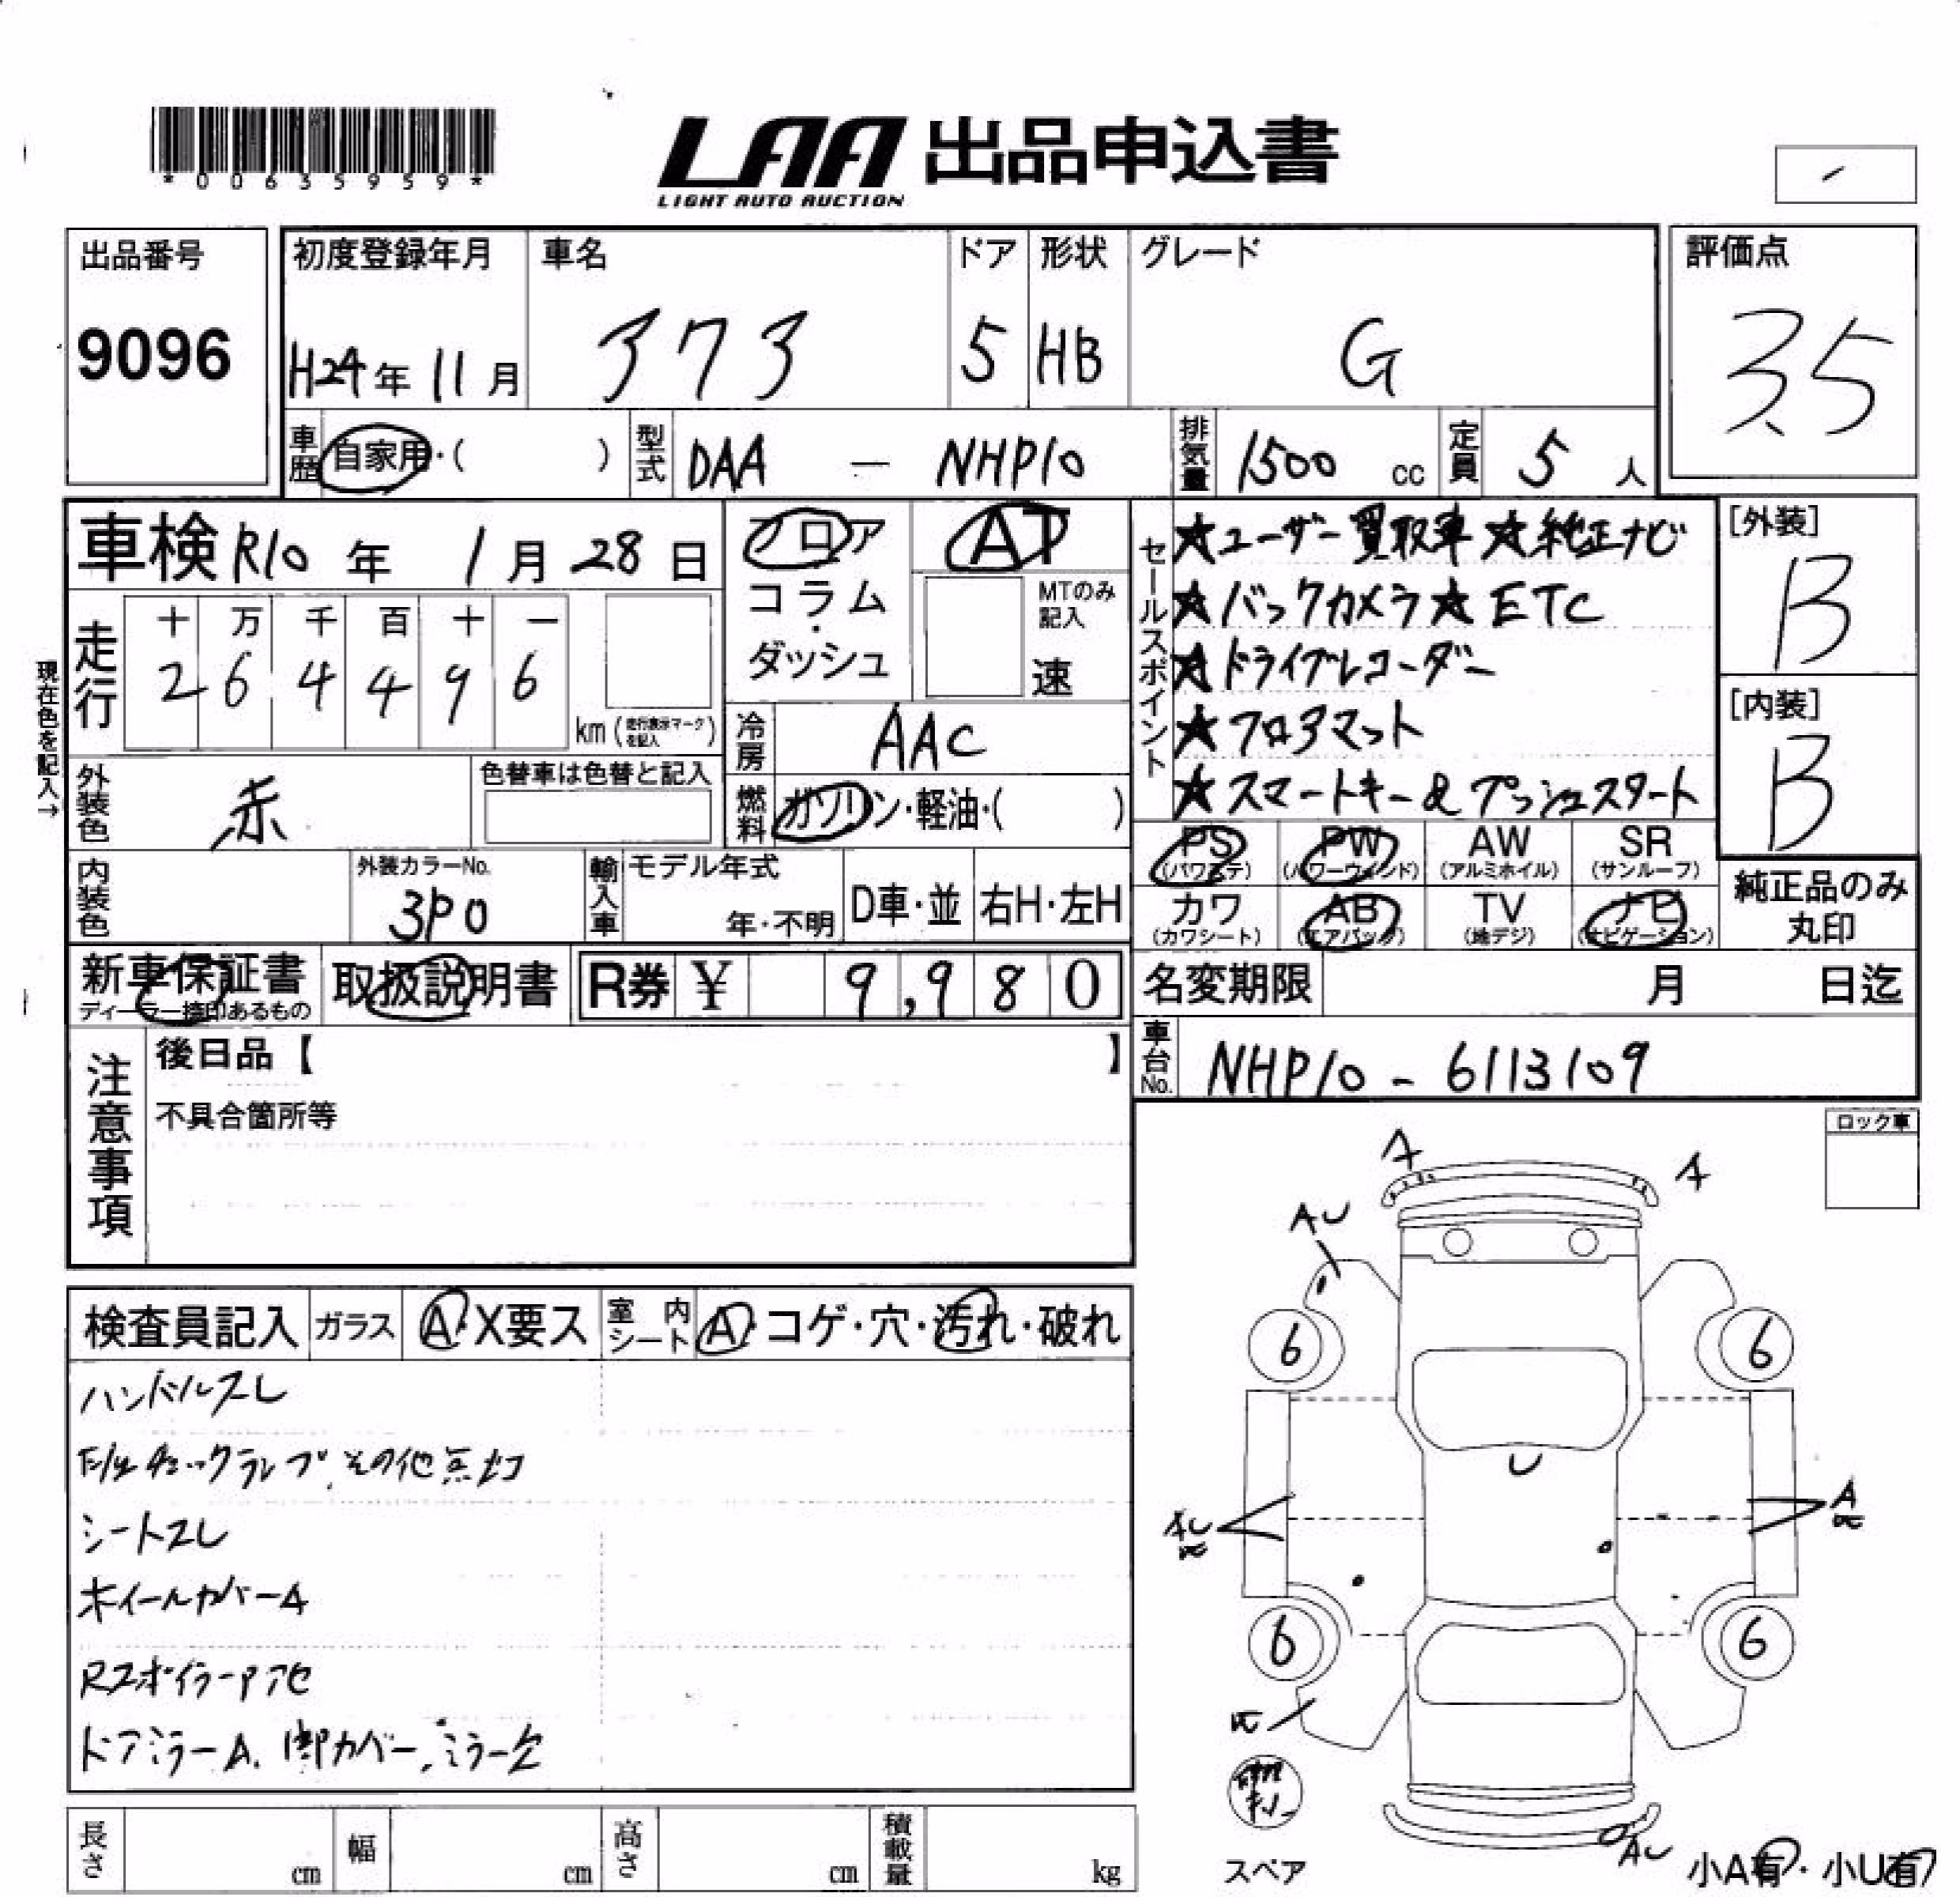 *00635959*
LAA 出品申込書
LIGHT AUTO AUCTION
出品番号 初度登録年月 車名 ドア 形状 グレード 評価点
9096 H24年 11月 アクア 5 HB G 3.5
車歴 自家用・( ) 型式 DAA — NHP10 排気量 1500 cc 定員 5 人
車検 R10 年 1 月 28 日
フロア・コラム・ダッシュ
AT
MTのみ記入
速
セールスポイント
★ユーザー買取車 ★純正ナビ
★バックカメラ★ETC
★ドライブレコーダー
★フロアマット
★スマートキー&プッシュスタート
[外装]
B
[内装]
B
現在色を記入→
走行 十 万 千 百 十 一
2 6 4 4 9 6
km(走行表示マークを記入)
冷房 AAC
外装色 赤 色替車は色替と記入
燃料 ガソリン・軽油・( )
PS (パワステ) PW (パワーウインド) AW (アルミホイル) SR (サンルーフ)
カワ (カワシート) AB (エアバック) TV (地デジ) ナビ (ナビゲーション)
純正品のみ丸印
内装色 外装カラーNo. 3P0 輸入車 モデル年式 年・不明 D車・並 右H・左H
新車保証書 ディーラー捺印あるもの 取扱説明書 R券 ¥ 9,980
名変期限 月 日迄
車台No. NHP10 - 6113109
注意事項
後日品【 】
不具合箇所等
ロック車
検査員記入 ガラス A・X要ス 室内シート A・コゲ・穴・汚れ・破れ
ハンドルスレ
チェックランプ、その他点灯
シートスレ
ホイールカバーA
Rスポイラー
ドアミラーA、脚カバー、ミラー
A
A
AU
6
6
U
AU
A
6
6
AU
スペア
小A有・小U有
長さ cm 幅 cm 高さ cm 積載量 kg